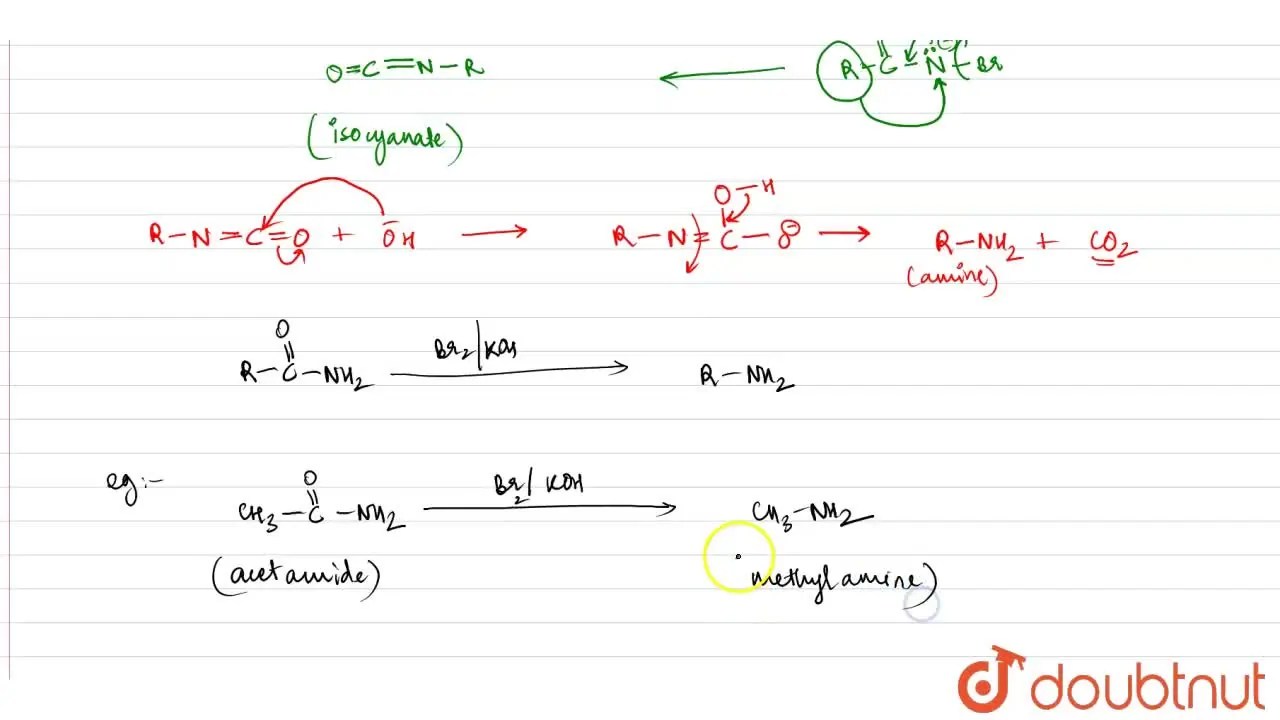 O=C=N-R
R-C-N-Br
(isocyanate)
O-H
R-N=C=O + ŌH → R-N=C-O⊖ → R-NH2 + CO2
(amine)
O
R-C-NH2 Br2/KOH → R-NH2
eg:-
O
CH3-C-NH2 Br2/KOH → CH3-NH2
(acetamide)
methylamine)
doubtnut